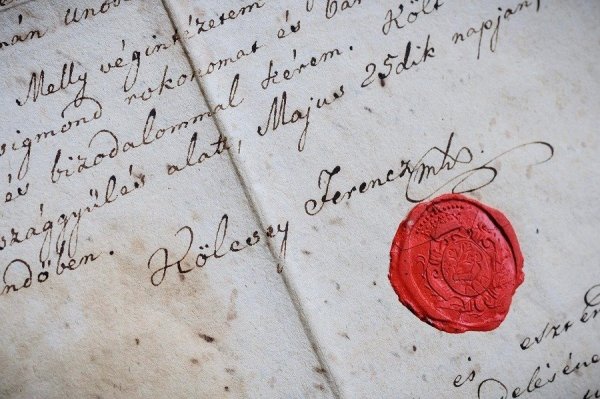 Melly végintézetem
sigmond rokonomat és bar
és bizodalommal kérem. Költ
szággyülés alatt, Majus 25dik napjan,
ndőben.
Kölcsey Ferencz mk.
és eszten
delésén